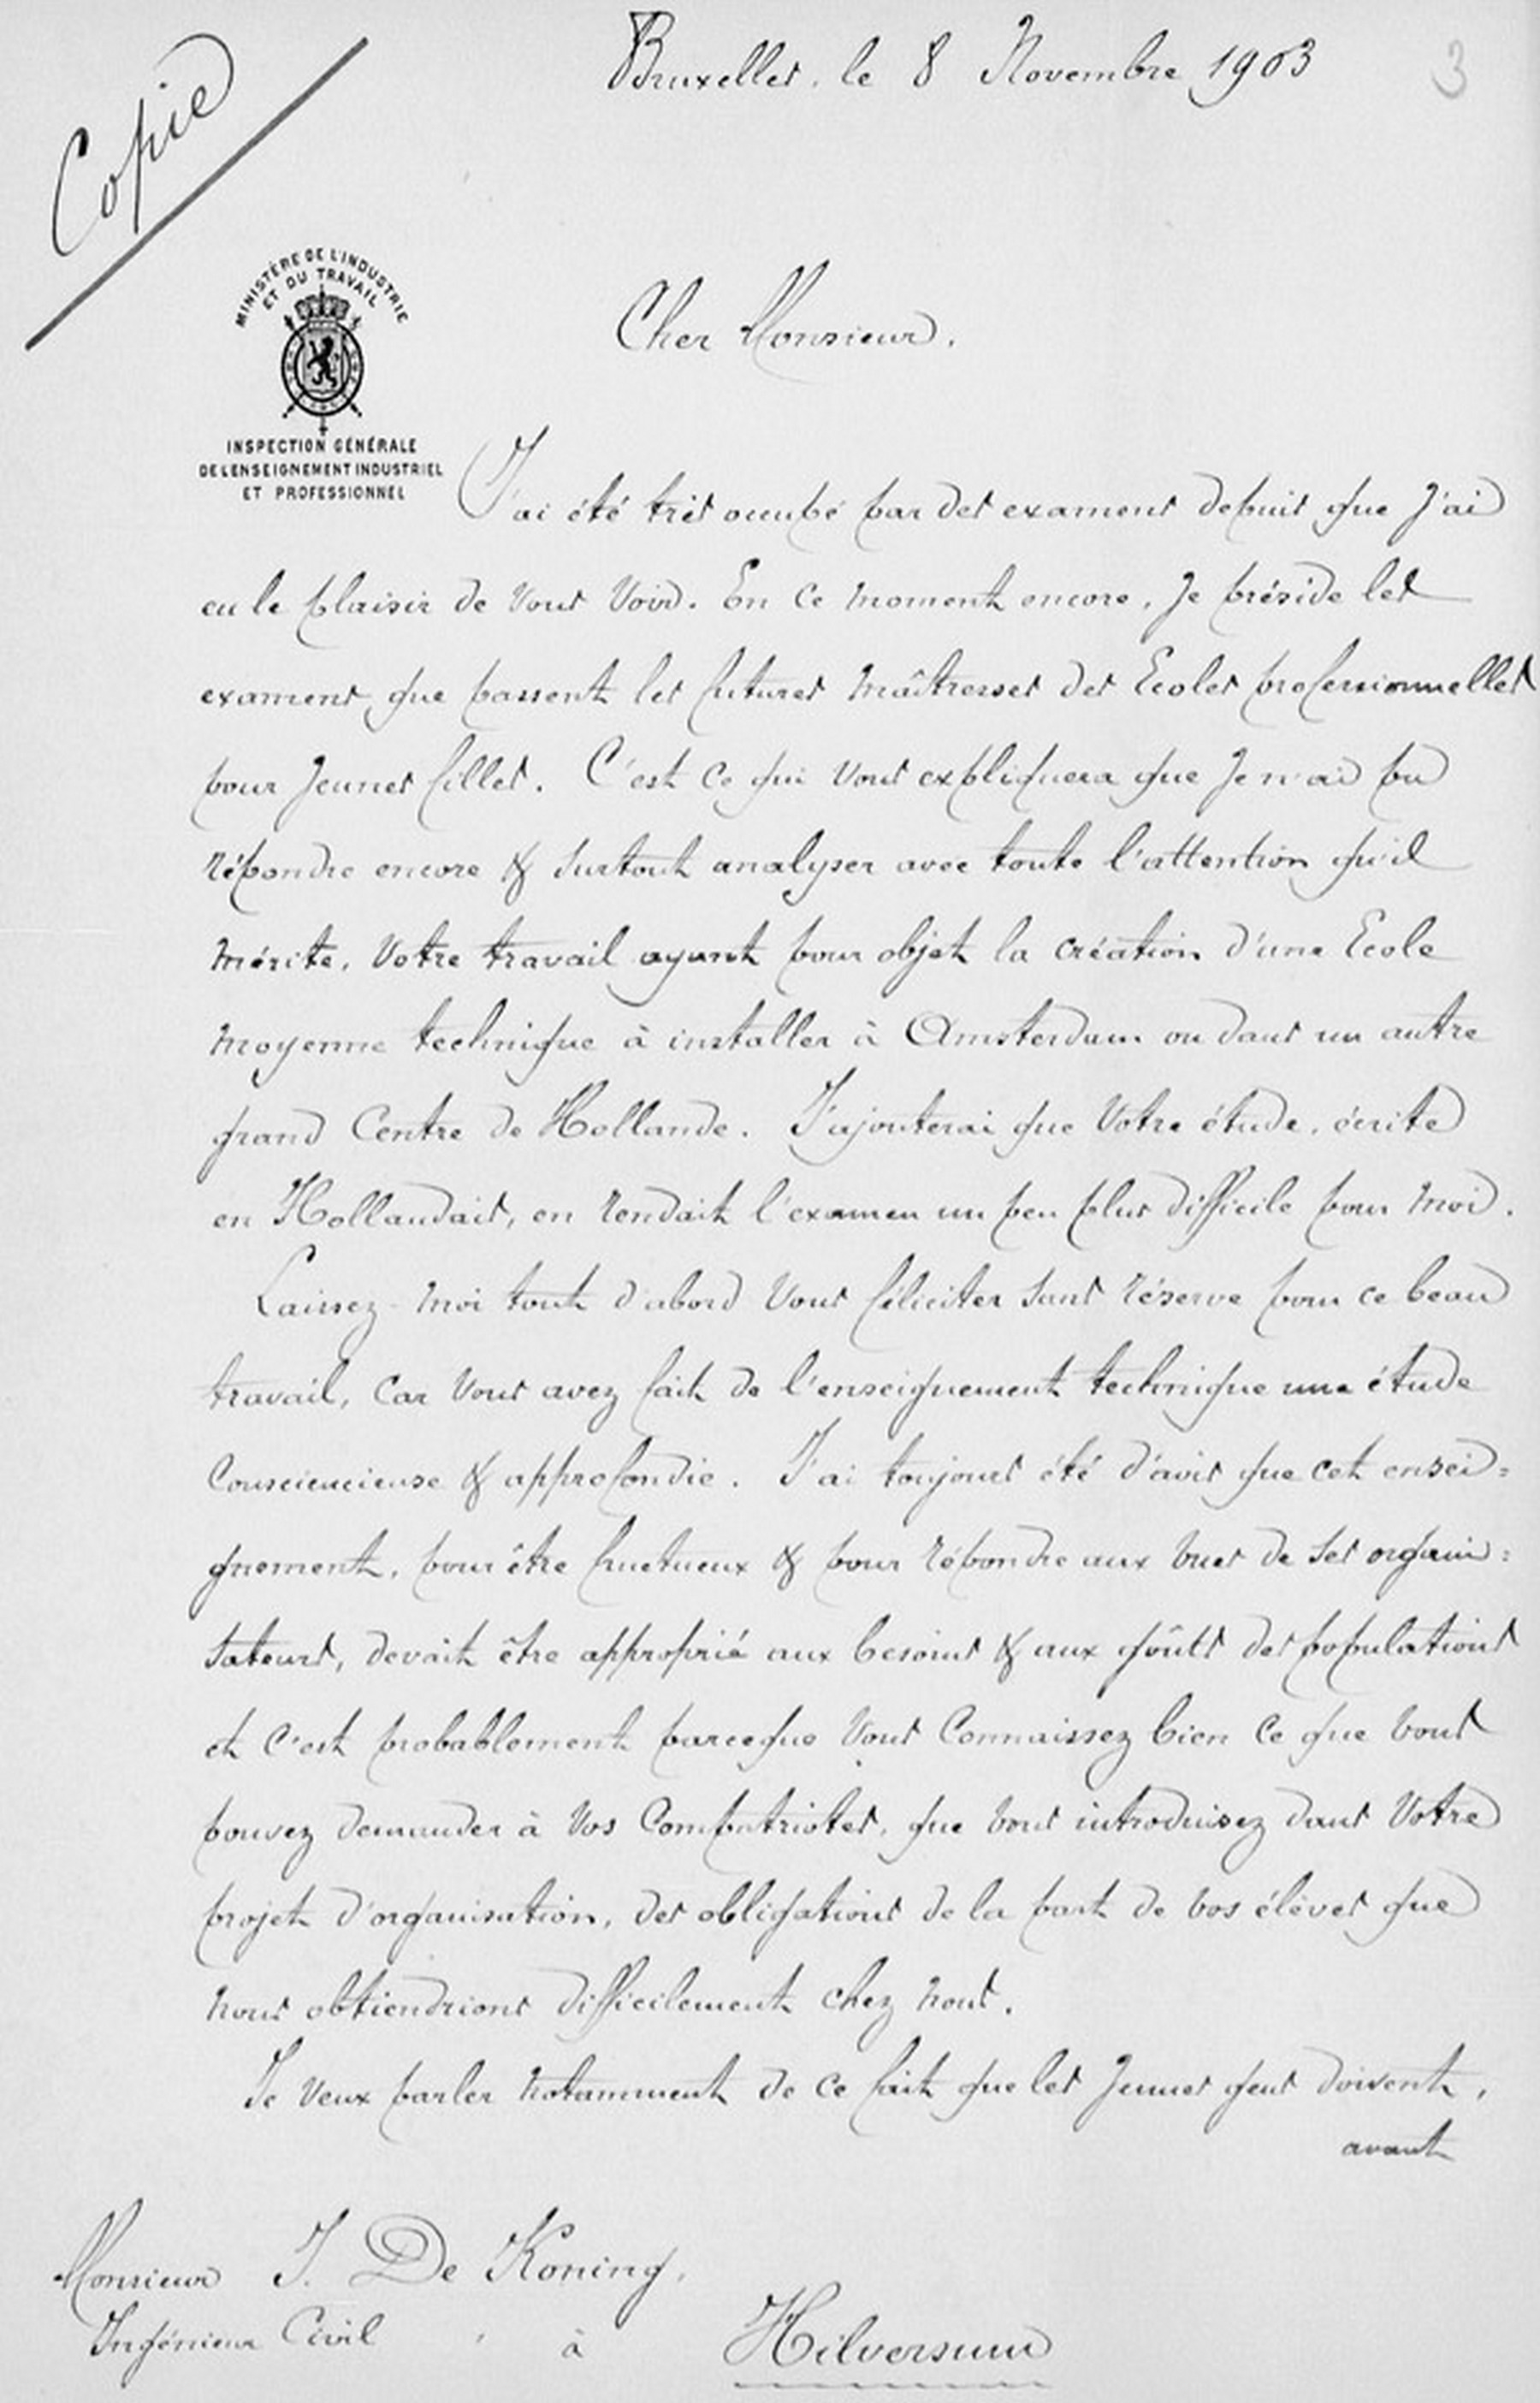 Bruxelles, le 8 Novembre 1903
3
Copie
MINISTÈRE DE L'INDUSTRIE
ET DU TRAVAIL
INSPECTION GÉNÉRALE
DE L'ENSEIGNEMENT INDUSTRIEL
ET PROFESSIONNEL
Cher Monsieur.
J'ai été très occupé par des examens depuis que j'ai
eu le plaisir de vous voir. En ce moment encore, je préside les
examens que passent les futures maîtresses des Ecoles professionnelles
pour Jeunes filles. C'est ce qui vous expliquera que je n'ai pu
répondre encore & surtout analyser avec toute l'attention qu'il
mérite, votre travail ayant pour objet la création d'une Ecole
moyenne technique à installer à Amsterdam ou dans un autre
grand Centre de Hollande. J'ajouterai que votre étude, écrite
en Hollandais, en rendait l'examen un peu plus difficile pour moi.
Laissez-moi tout d'abord vous féliciter sans réserve pour ce beau
travail, car vous avez fait de l'enseignement technique une étude
consciencieuse & approfondie. J'ai toujours été d'avis que cet ensei=
gnement, pour être fructueux & pour répondre aux vues de ses organi=
sateurs, devait être approprié aux besoins & aux goûts des populations
et c'est probablement parceque vous connaissez bien ce que vous
pouvez demander à vos compatriotes, que vous introduisez dans votre
projet d'organisation, des obligations de la part de vos élèves que
nous obtiendrions difficilement chez nous.
Je veux parler notamment de ce fait que les jeunes gens doivent,
avant
Monsieur J. De Koning,
Ingénieur Civil à Hilversum